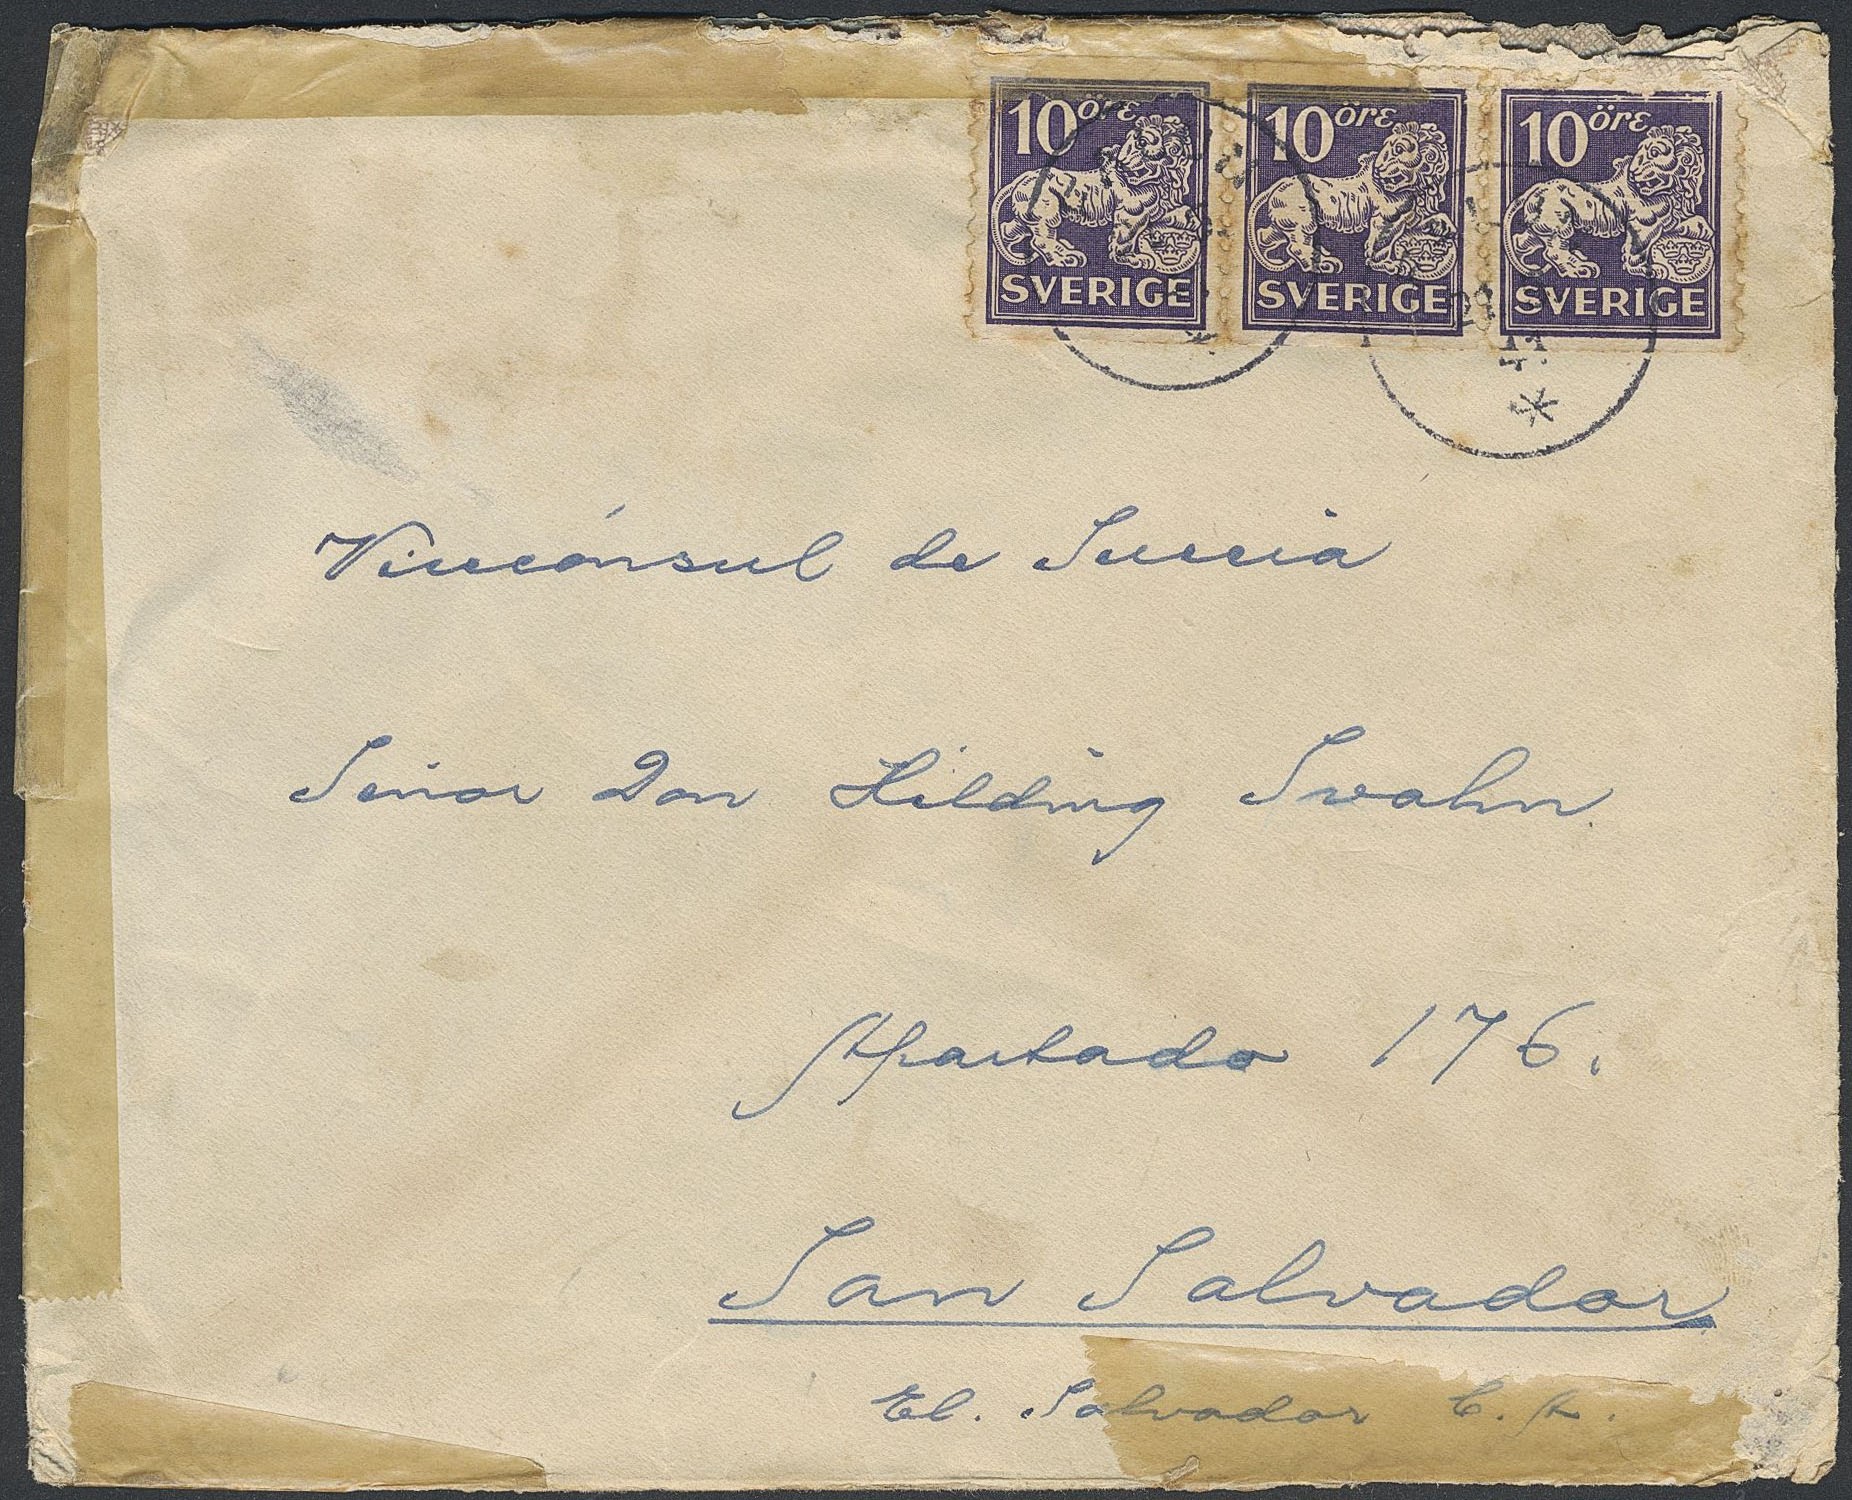 10 öre 10 öre 10 öre
SVERIGE SVERIGE SVERIGE
Vicecónsul de Suecia
Señor Don Hilding Svahn.
Apartado 176.
San Salvador
El. Salvador C.A.